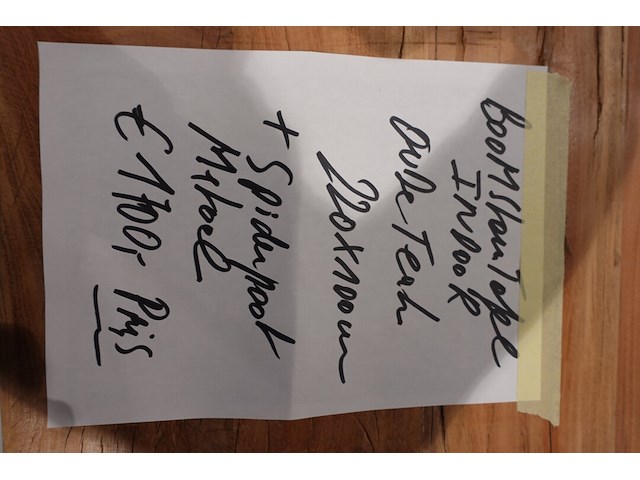 BOOMStamTafel
INDOOR
OUDe Teak
220x100cm
+ Spiderpoot
Metaal
€ 1700,- Prijs